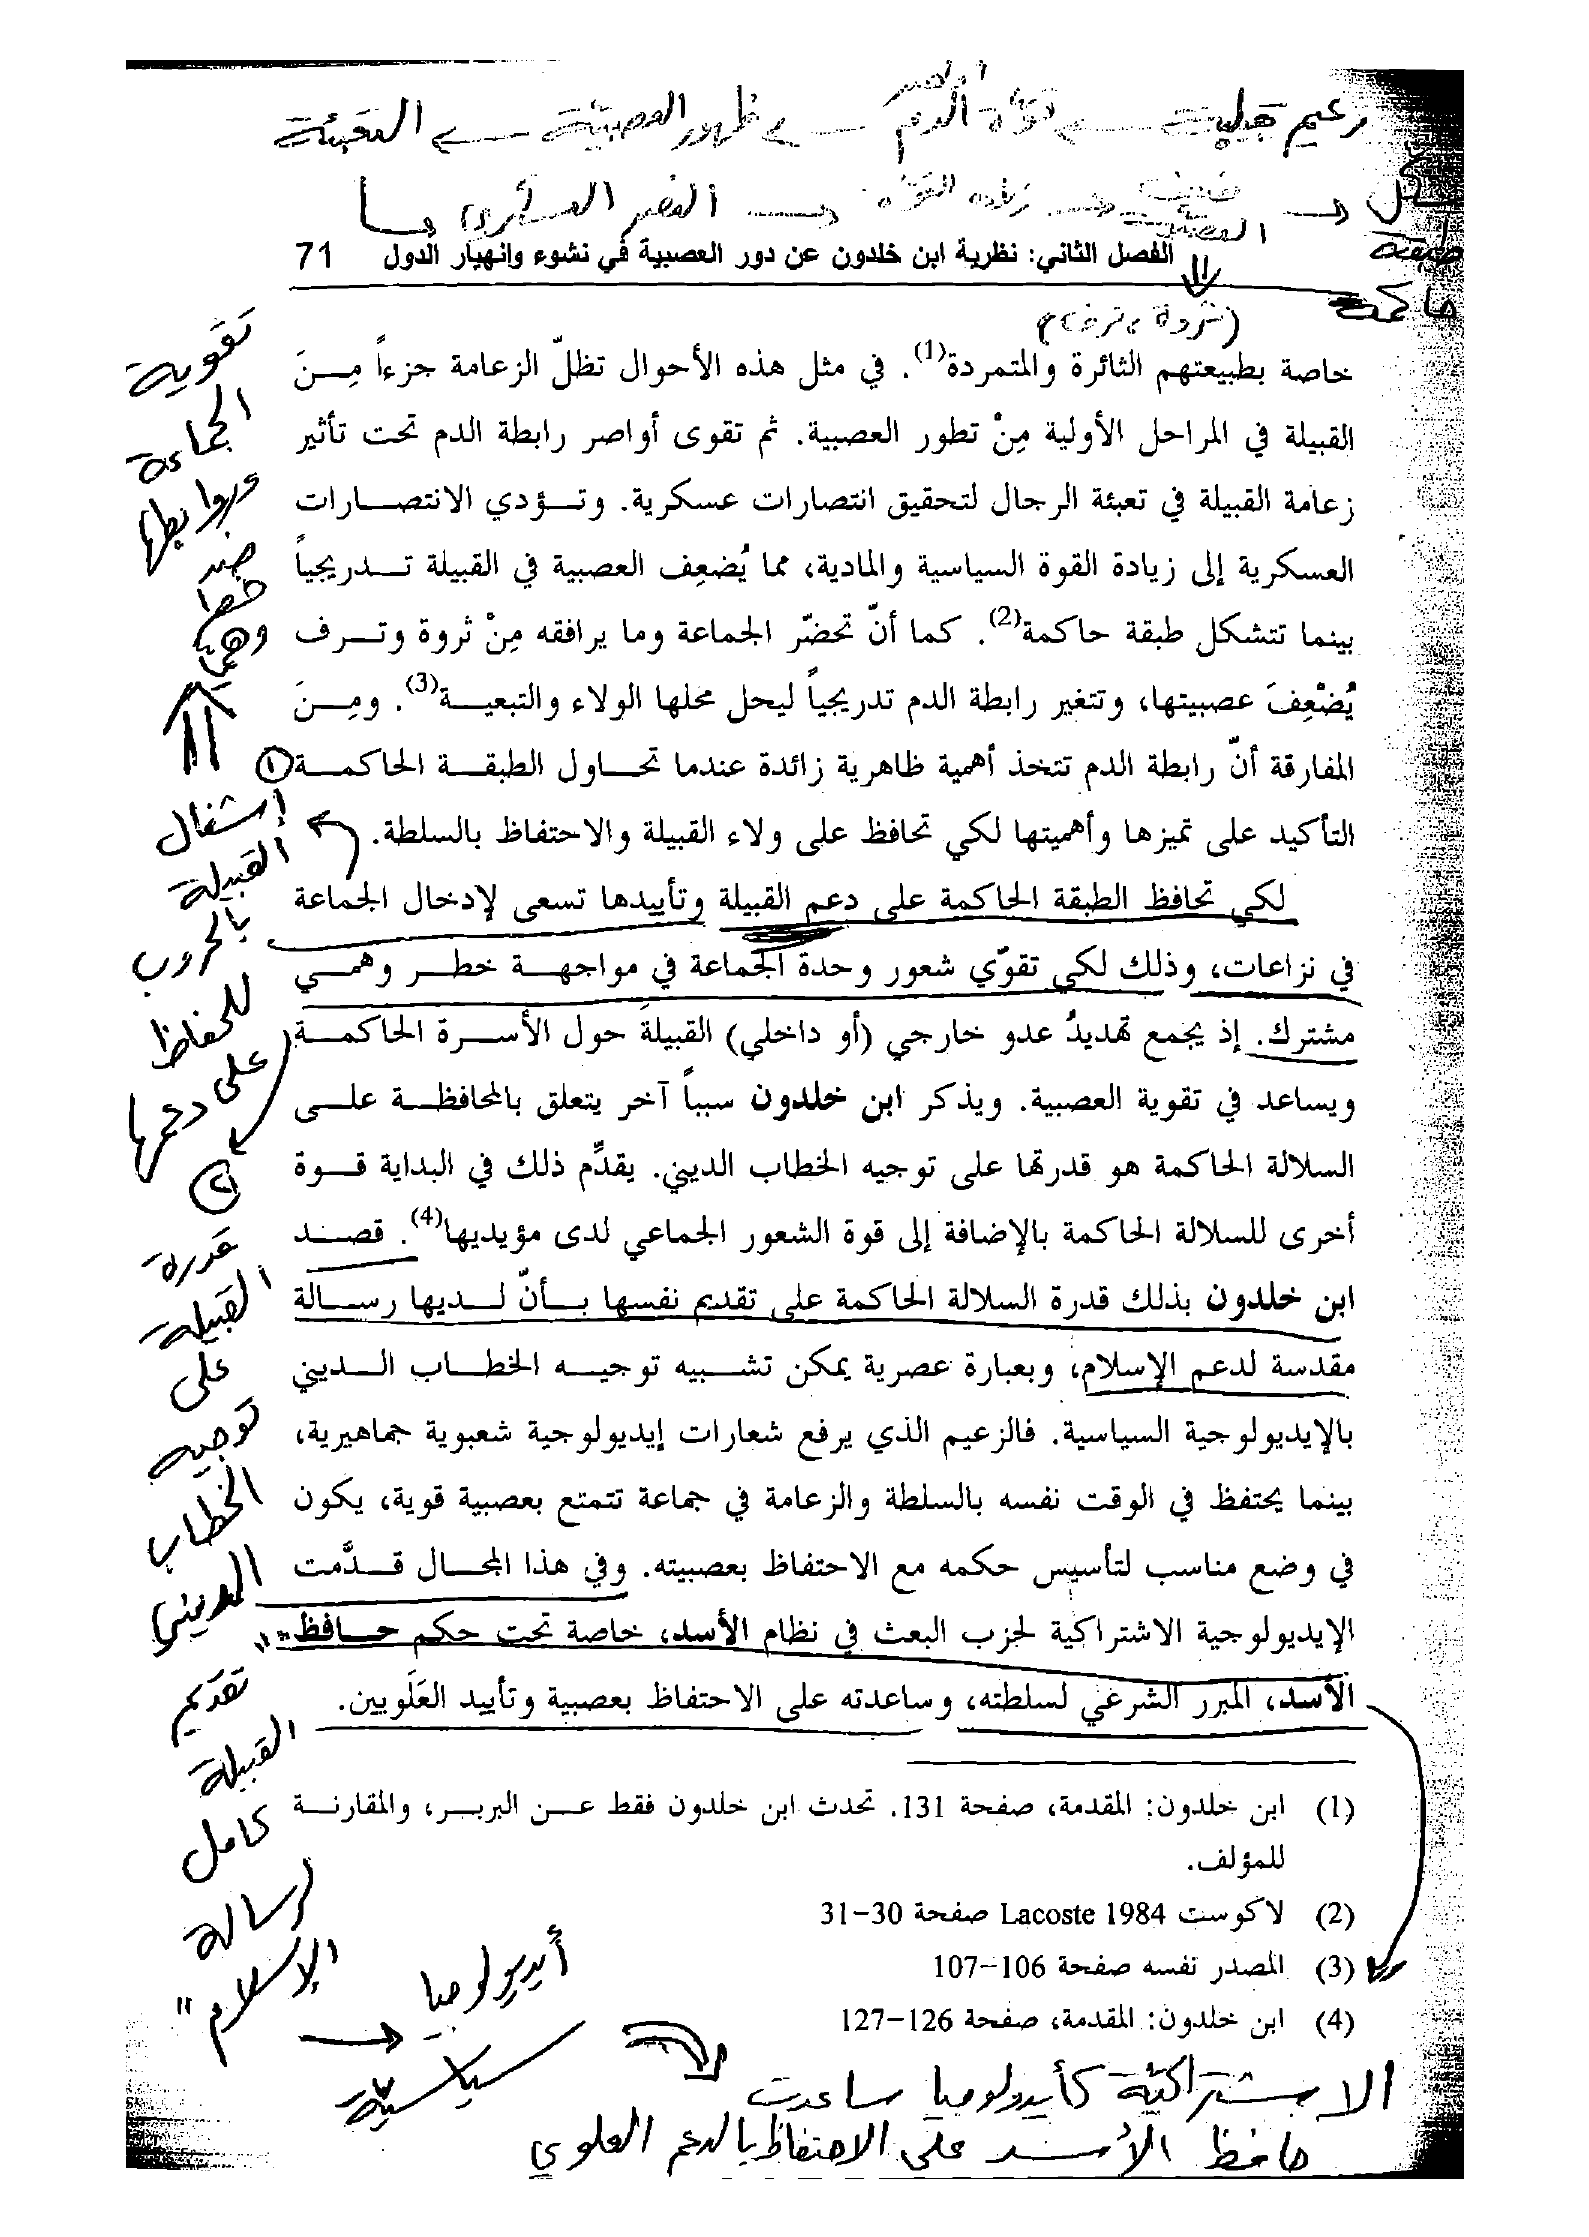 زعيم قبلية ← قوة أواصر الدم ← ظهور العصبية ← التعبئة
النصر العسكري → زيادة القوة → ضعف العصبية → تشكل طبقة حاكمة
الفصل الثاني: نظرية ابن خلدون عن دور العصبية في نشوء وانهيار الدول 71
(ثروة، ترف)
خاصة بطبيعتهم الثائرة والمتمردة(1). في مثل هذه الأحوال تظلّ الزعامة جزءاً مِنَ
القبيلة في المراحل الأولية مِنْ تطور العصبية. ثم تقوى أواصر رابطة الدم تحت تأثير
زعامة القبيلة في تعبئة الرجال لتحقيق انتصارات عسكرية. وتؤدي الانتصارات
العسكرية إلى زيادة القوة السياسية والمادية، مما يُضعِف العصبية في القبيلة تدريجياً
بينما تتشكل طبقة حاكمة(2). كما أنّ تحضّر الجماعة وما يرافقه مِنْ ثروة وترف
يُضْعِفَ عصبيتها، وتتغير رابطة الدم تدريجياً ليحل محلها الولاء والتبعية(3). ومِنَ
المفارقة أنّ رابطة الدم تتخذ أهمية ظاهرية زائدة عندما تحاول الطبقة الحاكمة
التأكيد على تميزها وأهميتها لكي تحافظ على ولاء القبيلة والاحتفاظ بالسلطة.
لكي تحافظ الطبقة الحاكمة على دعم القبيلة وتأييدها تسعى لإدخال الجماعة
في نزاعات، وذلك لكي تقوّي شعور وحدة الجماعة في مواجهة خطر وهمي
مشترك. إذ يجمع تهديدُ عدو خارجي (أو داخلي) القبيلةَ حول الأسرة الحاكمة
ويساعد في تقوية العصبية. ويذكر ابن خلدون سبباً آخر يتعلق بالمحافظة على
السلالة الحاكمة هو قدرتها على توجيه الخطاب الديني. يقدِّم ذلك في البداية قوة
أخرى للسلالة الحاكمة بالإضافة إلى قوة الشعور الجماعي لدى مؤيديها(4). قصد
ابن خلدون بذلك قدرة السلالة الحاكمة على تقديم نفسها بأنّ لديها رسالة
مقدسة لدعم الإسلام، وبعبارة عصرية يمكن تشبيه توجيه الخطاب الديني
بالإيديولوجية السياسية. فالزعيم الذي يرفع شعارات إيديولوجية شعبوية جماهيرية،
بينما يحتفظ في الوقت نفسه بالسلطة والزعامة في جماعة تتمتع بعصبية قوية، يكون
في وضع مناسب لتأسيس حكمه مع الاحتفاظ بعصبيته. وفي هذا المجال قدَّمت
الإيديولوجية الاشتراكية لحزب البعث في نظام الأسد، خاصة تحت حكم حافظ
الأسد، المبرر الشرعي لسلطته، وساعدته على الاحتفاظ بعصبية وتأييد العَلَويين.
(1) ابن خلدون: المقدمة، صفحة 131. تحدث ابن خلدون فقط عن البربر، والمقارنة
للمؤلف.
(2) لاكوست Lacoste 1984 صفحة 30-31
(3) المصدر نفسه صفحة 106-107
(4) ابن خلدون: المقدمة، صفحة 126-127
تقوية
الجماعة
وروابطها
ضد
خطر
وهمي
①
إشغال
القبيلة
بالحروب
للحفاظ
على دعمها
②
قدرة
القبيلة
على
توجيه
الخطاب
الديني
" تقديم
القبيلة
كامل
لرسالة
الإسلام "
أيديولوجيا
سياسية
الاشتراكية كأيديولوجيا ساعدت
حافظ الأسد على الاحتفاظ بالدعم العلوي